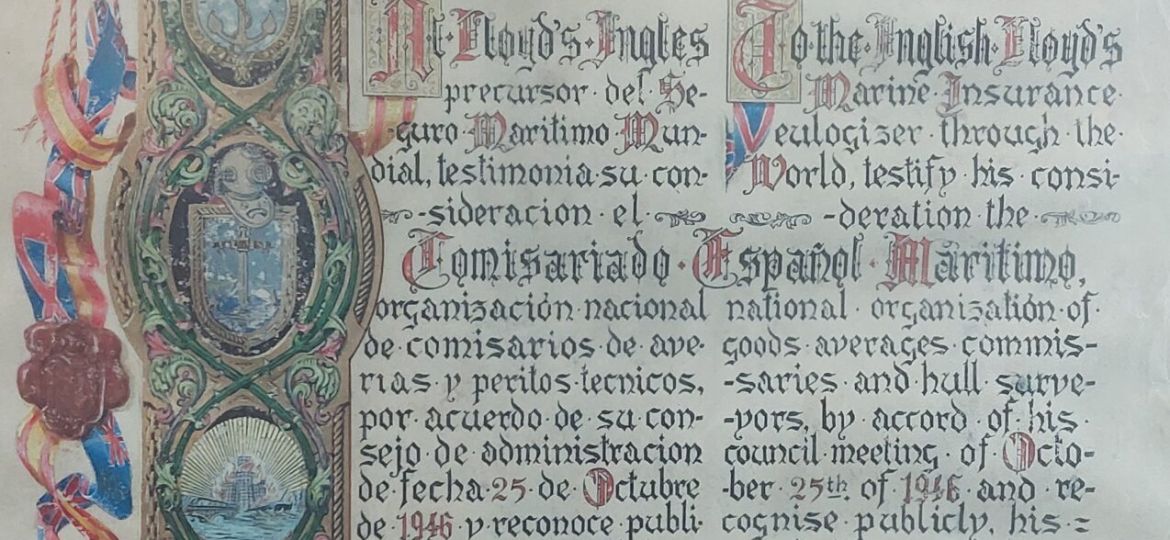 Al·Lloyd's·Ingles
precursor·del·Se-
-guro·Maritimo·Mun-
dial, testimonia·su·con-
-sideracion·el·
To·the·Inglish·Lloyd's
Marine·Insurance·
eulogizer·through·the·
World, testify·his·consi-
-deration·the·
Comisariado·Español·Maritimo,
organización nacional
de·comisarios·de·ave-
rias·y·peritos·tecnicos,
por·acuerdo·de·su·con-
sejo·de·administracion
de·fecha·25·de·Octubre
de·1946·y·reconoce·publi-
national·organization·of·
goods·averages·commis-
-saries·and·hull·surve-
-yors, by·accord·of·his·
council·meeting·of·Octo-
-ber·25th·of·1946·and·re-
cognise·publicly, his·=